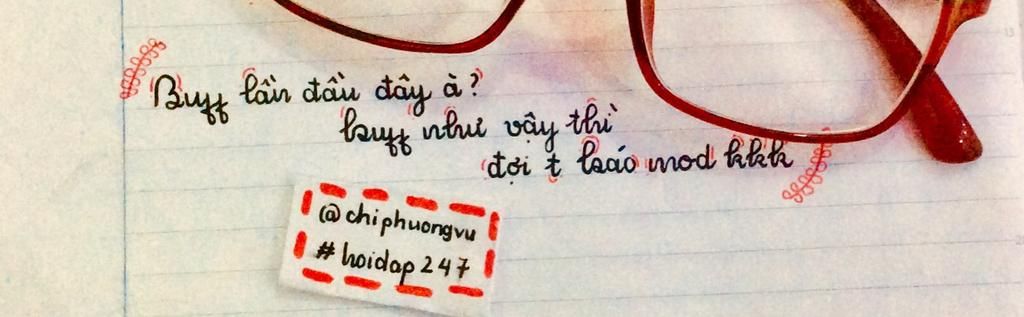 Buff lần đầu đây à?
buff như vậy thì
đợi t báo mod kkk
@chiphuongvu
#hoidap247